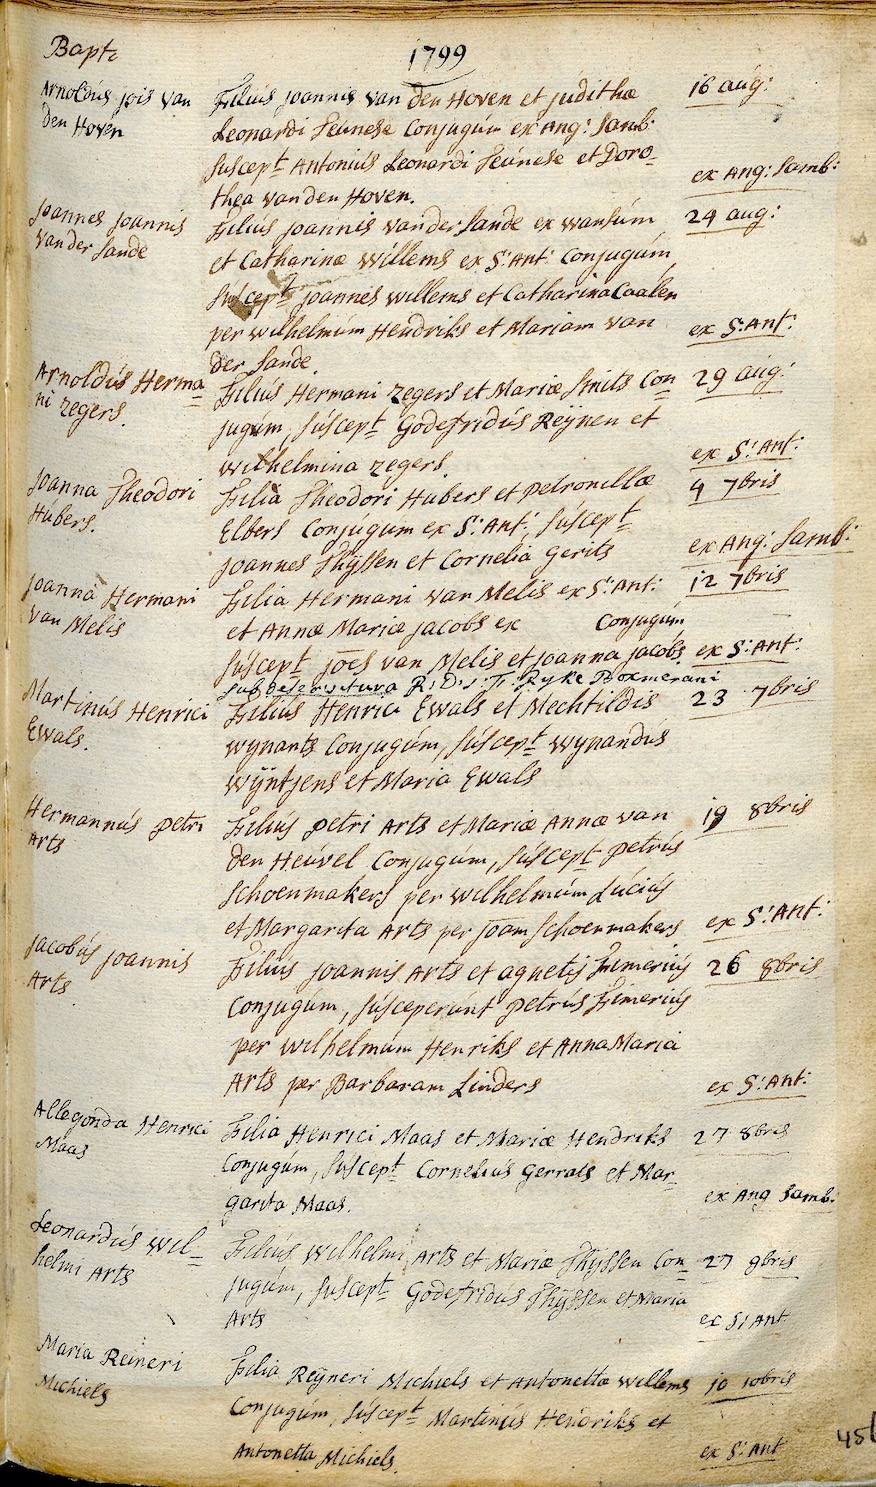 Bapt:
1799
Arnoldús jois van
den Hoven
Filius joannis van den Hoven et judithæ
Leonardi Teúnese Conjugúm ex Ang: Samb:
suscept Antoniús Leonardi Teúnese et Doro-
thea van den Hoven.
16 aúg:
ex Ang: Samb:
joannes joannis
van der Sande
Filiús joannis van der Sande ex wansúm
et Catharinæ willems ex S: Ant: Conjugúm
súscept joannes willems et Catharina Caalen
per wilhelmúm Hendriks et Mariam van
der Sande.
24 aug:
ex S: Ant:
Arnoldús Herma=
ni zegers.
Filiús Hermani zegers et Mariæ Smits Con=
jugúm, súscept Godefridús Reÿnen et
wilhelmina zegers.
29 aúg:
ex S: Ant:
joanna Theodori
Húbers.
Filia Theodori Hubers et petronillæ
Elbers Conjúgum ex S: Ant:, súscept
joannes Thÿssen et Cornelia gerits
4 7bris
ex Ang: Samb:
joanna Hermani
van Melis
Filia Hermani van Melis ex S: Ant:
et Annæ Mariæ jacobs ex Conjugúm
súscept joes van Melis et joanna jacobs.
12 7bris
ex S: Ant:
sub deservitura R: D: j: Tr: Ryke Boxmerani
Martinús Henrici
Ewals.
Filiús Henrici Ewals et Mechtildis
wynants Conjugúm, súscept wynandús
wÿntjens et Maria Ewals
23 7bris
Hermannús petri
Arts
Filiús petri Arts et Mariæ Annæ van
den Heúvel Conjugúm, súscept petrús
schoenmakers per wilhelmúm Lúciús
et Margarita Arts per joam schoenmakers
19 8bris
ex S: Ant:
jacobús joannis
Arts
Filiús joannis Arts et agnetis Fimeriús
Conjugúm, súsceperúnt petrús Fimeriús
per wilhelmúm Henriks et Anna Maria
Arts per Barbaram Linders
26 8bris
ex S: Ant:
Allegonda Henrici
Maas
Filia Henrici Maas et Mariæ Hendriks
Conjugúm, súscept Corneliús gerrats et Mar-
garita Maas.
27 8bris
ex Ang Samb:
Leonardús wil=
helmi Arts
Filiús wilhelmi Arts et Mariæ Thÿssen Con=
jugúm, súscept Godefridus Thÿssen et Maria
Arts
27 9bris
ex S: Ant
Maria Reineri
Michiels
Filia Reÿneri Michiels et Antonettæ willems
Conjugúm, súscept Martinús Hendriks et
Antonetta Michiels.
10 10bris
ex S: Ant